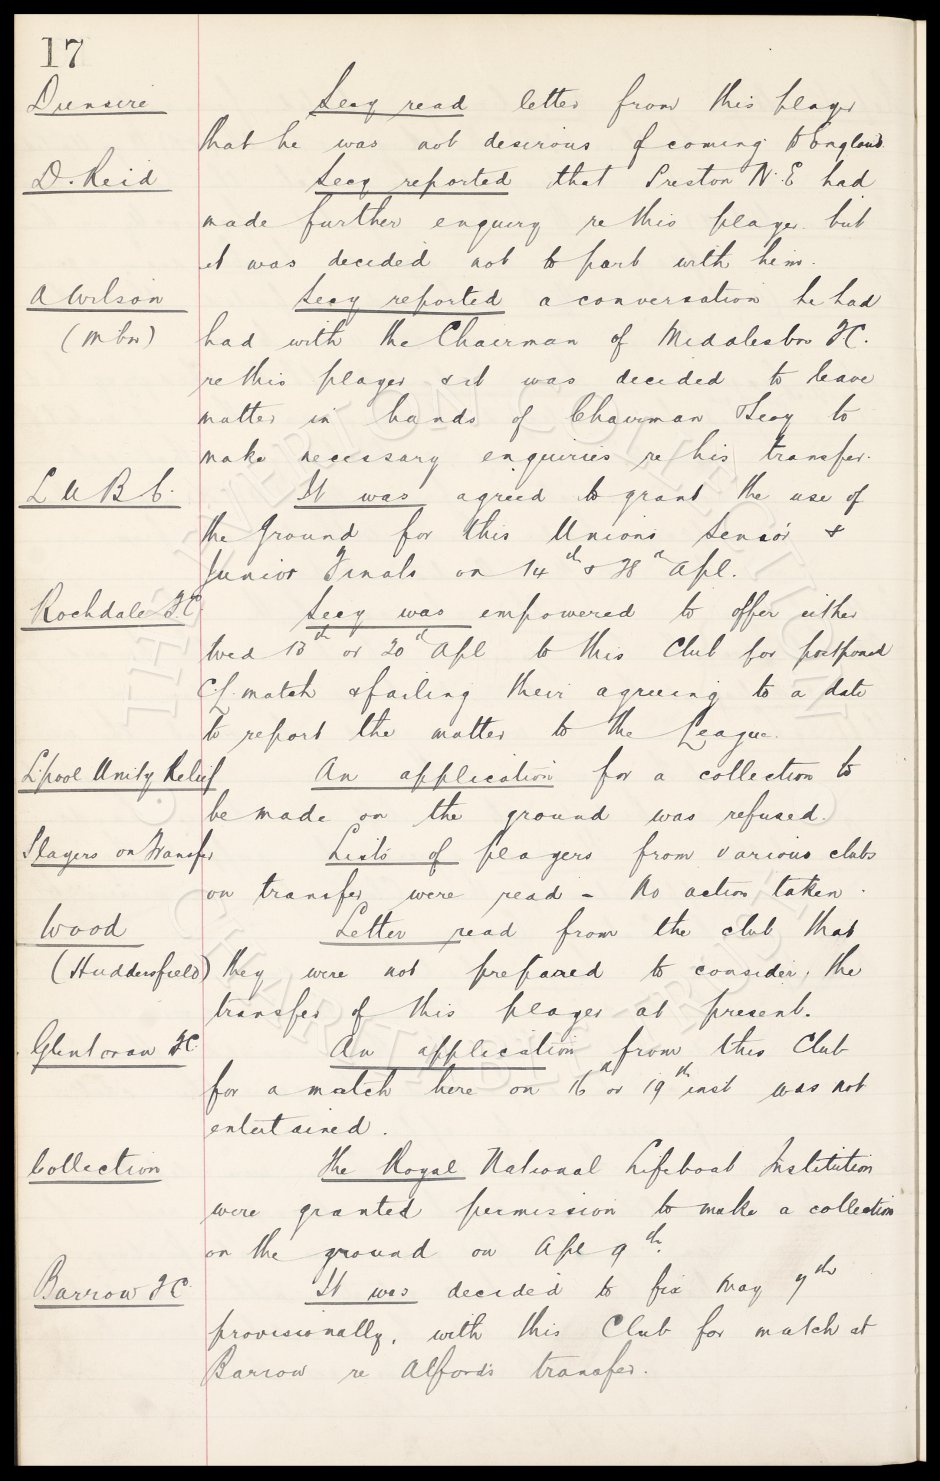 17
Dunsire Secy read letter from this player
that he was not desirous of coming to England.
D. Reid Secy reported that Preston N.E had
made further enquiry re this player but
it was decided not to part with him.
A Wilson Secy reported a conversation he had
(Mbro) had with the Chairman of Middlesbro F.C.
re this player & it was decided to leave
matter in hands of Chairman & Secy to
make necessary enquiries re his transfer.
L U B C. It was agreed to grant the use of
the Ground for this Unions Senior &
Junior Finals on 14th & 28th Apl.
Rochdale F.C. Secy was empowered to offer either
Wed 13th or 20th Apl to this Club for postponed
C.L. match & failing their agreeing to a date
to report the matter to the League.
L'pool Unity Relief An application for a collection to
be made on the ground was refused.
Players on Transfer Lists of players from various clubs
on transfer were read - No action taken.
Wood Letter read from the club that
(Huddersfield) they were not prepared to consider, the
transfer of this player at present.
Glentoran F.C. An application from this Club
for a match here on 16th or 19th inst was not
entertained.
Collection The Royal National Lifeboat Institution
were granted permission to make a collection
on the ground on Apl 9th.
Barrow F.C. It was decided to fix May 7th
provisionally, with this Club for match at
Barrow re Alford's transfer.
THE EVERTON COLLECTION
CHARITABLE TRUST